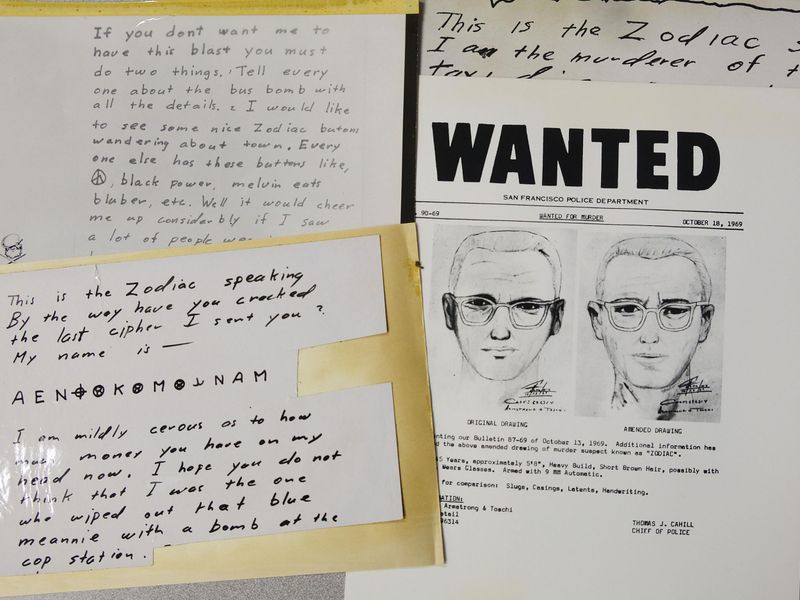 If you dont want me to
have this blast you must
do two things. Tell every
one about the bus bomb with
all the details. 2 I would like
to see some nice Zodiac butons
wandering about town. Every
one else has these buttons like,
, black power, melvin eats
bluber, etc. Well it would cheer
me up considerbly if I saw
a lot of people
This is the Zodiac speaking
By the way have you cracked
the last cipher I sent you?
My name is —
A E N ⌖ ⊗ K ⊗ M ⊗ ⅃ N A M
I am mildly cerous as to how
much money you have on my
head now. I hope you do not
think that I was the one
who wiped out that blue
meannie with a bomb at the
cop station.
This is the Zodiac s
I am the murderer of t
WANTED
SAN FRANCISCO POLICE DEPARTMENT
90-69 WANTED FOR MURDER OCTOBER 18, 1969
ORIGINAL DRAWING AMENDED DRAWING
nting our Bulletin 87-69 of October 13, 1969. Additional information has
d the above amended drawing of murder suspect known as "ZODIAC".
5 Years, approximately 5'8", Heavy Build, Short Brown Hair, possibly with
Wears Glasses. Armed with 9 MM Automatic.
for comparison: Slugs, Casings, Latents, Handwriting.
ATION:
Armstrong & Toschi
etail
96314
THOMAS J. CAHILL
CHIEF OF POLICE